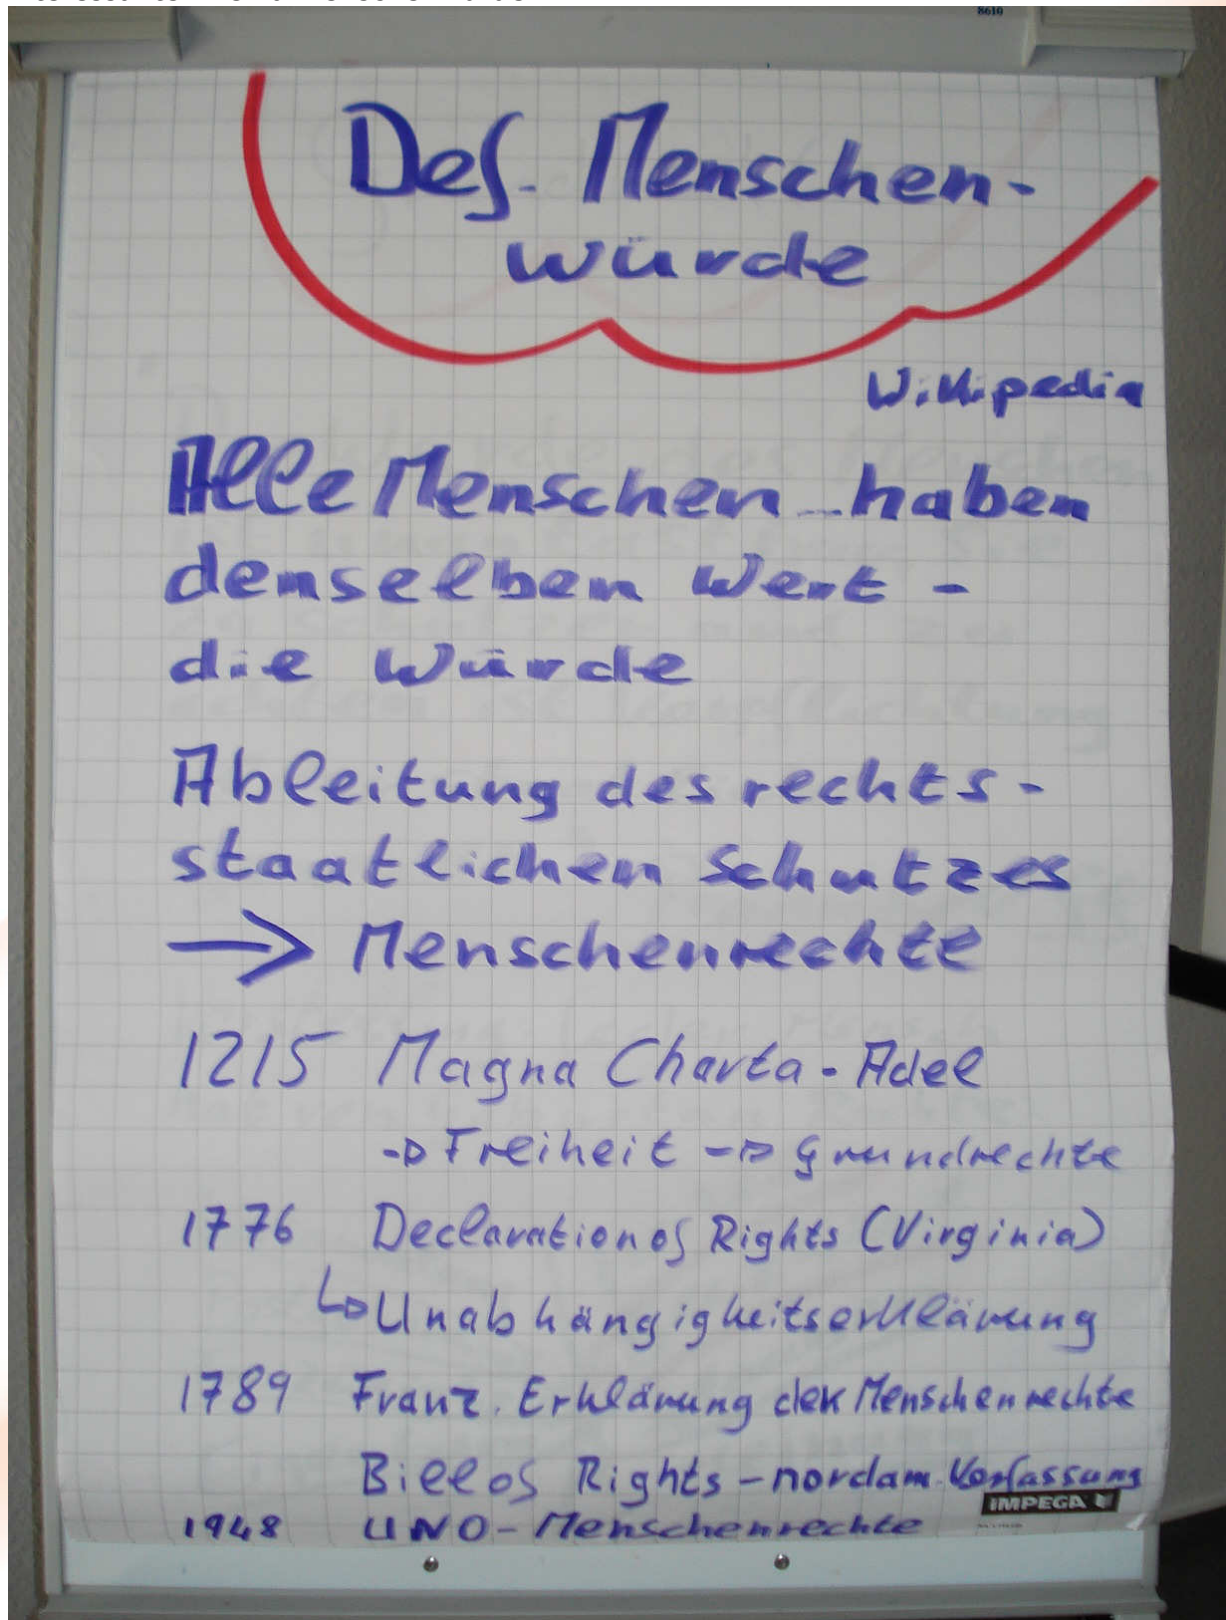 8610
Def. Menschen-
würde
Wikipedia
Alle Menschen haben
denselben Wert -
die Würde
Ableitung des rechts-
staatlichen Schutzes
→ Menschenrechte
1215 Magna Charta - Adel
→ Freiheit → Grundrechte
1776 Declaration of Rights (Virginia)
↳ Unabhängigkeitserklärung
1789 Franz. Erklärung der Menschenrechte
Bill of Rights - nordam. Verfassung
IMPEGA
1948 UNO - Menschenrechte